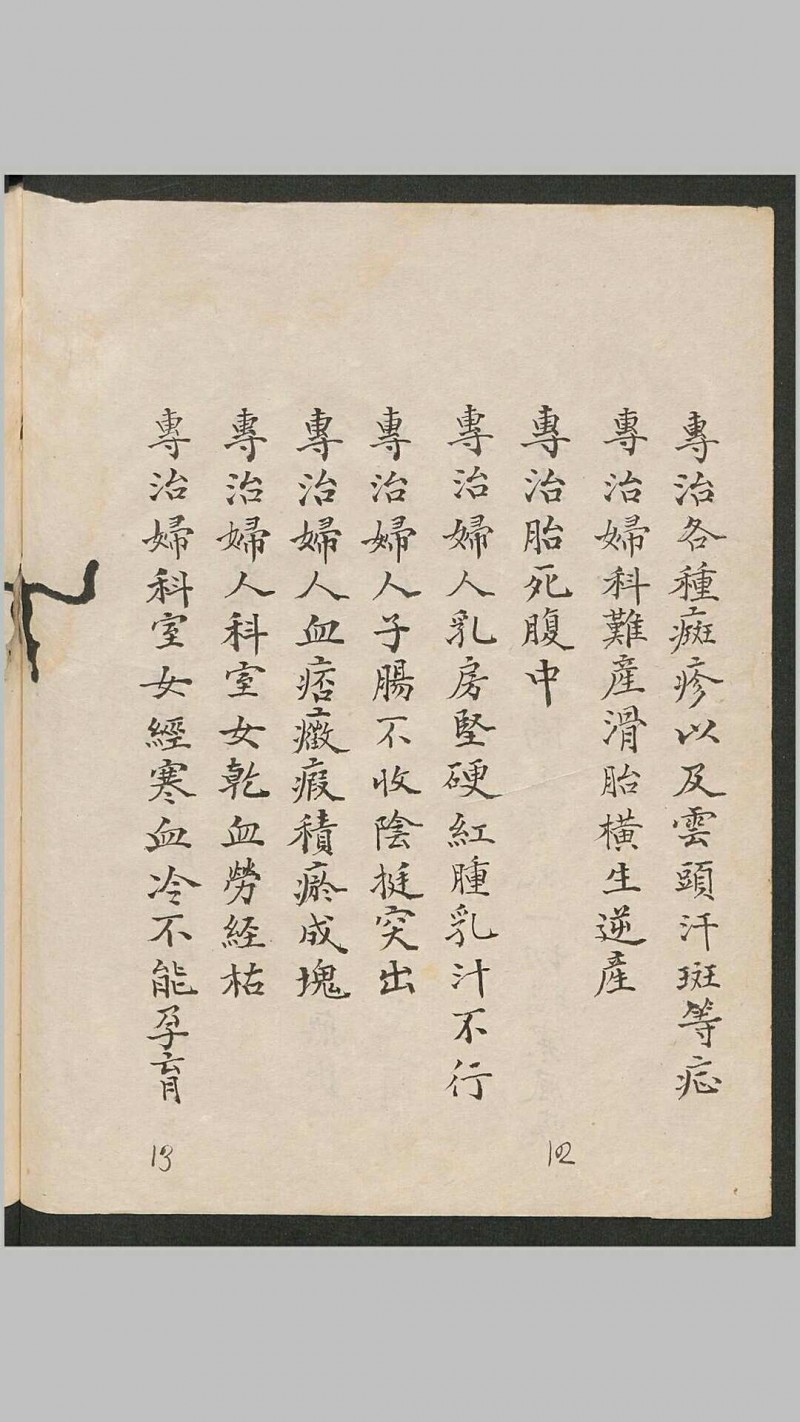 專治各種癍疹以及雲頭汗斑等症
專治婦科難產滑胎橫生逆產
專治胎死腹中
專治婦人乳房堅硬紅腫乳汁不行
專治婦人子腸不收陰挺突出
專治婦人血痞癥瘕積瘀成塊
專治婦人科室女乾血勞経枯
專治婦科室女經寒血冷不能孕育
12
13